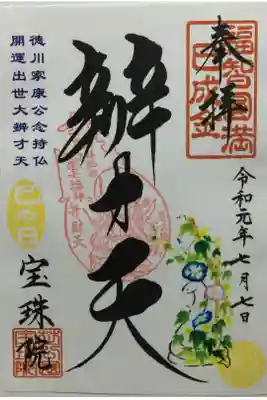 奉拝
福智円満
巳成金
令和元年七月七日
辨才天
徳川家康公念持仏
開運出世大辨才天
巳の日
宝珠院